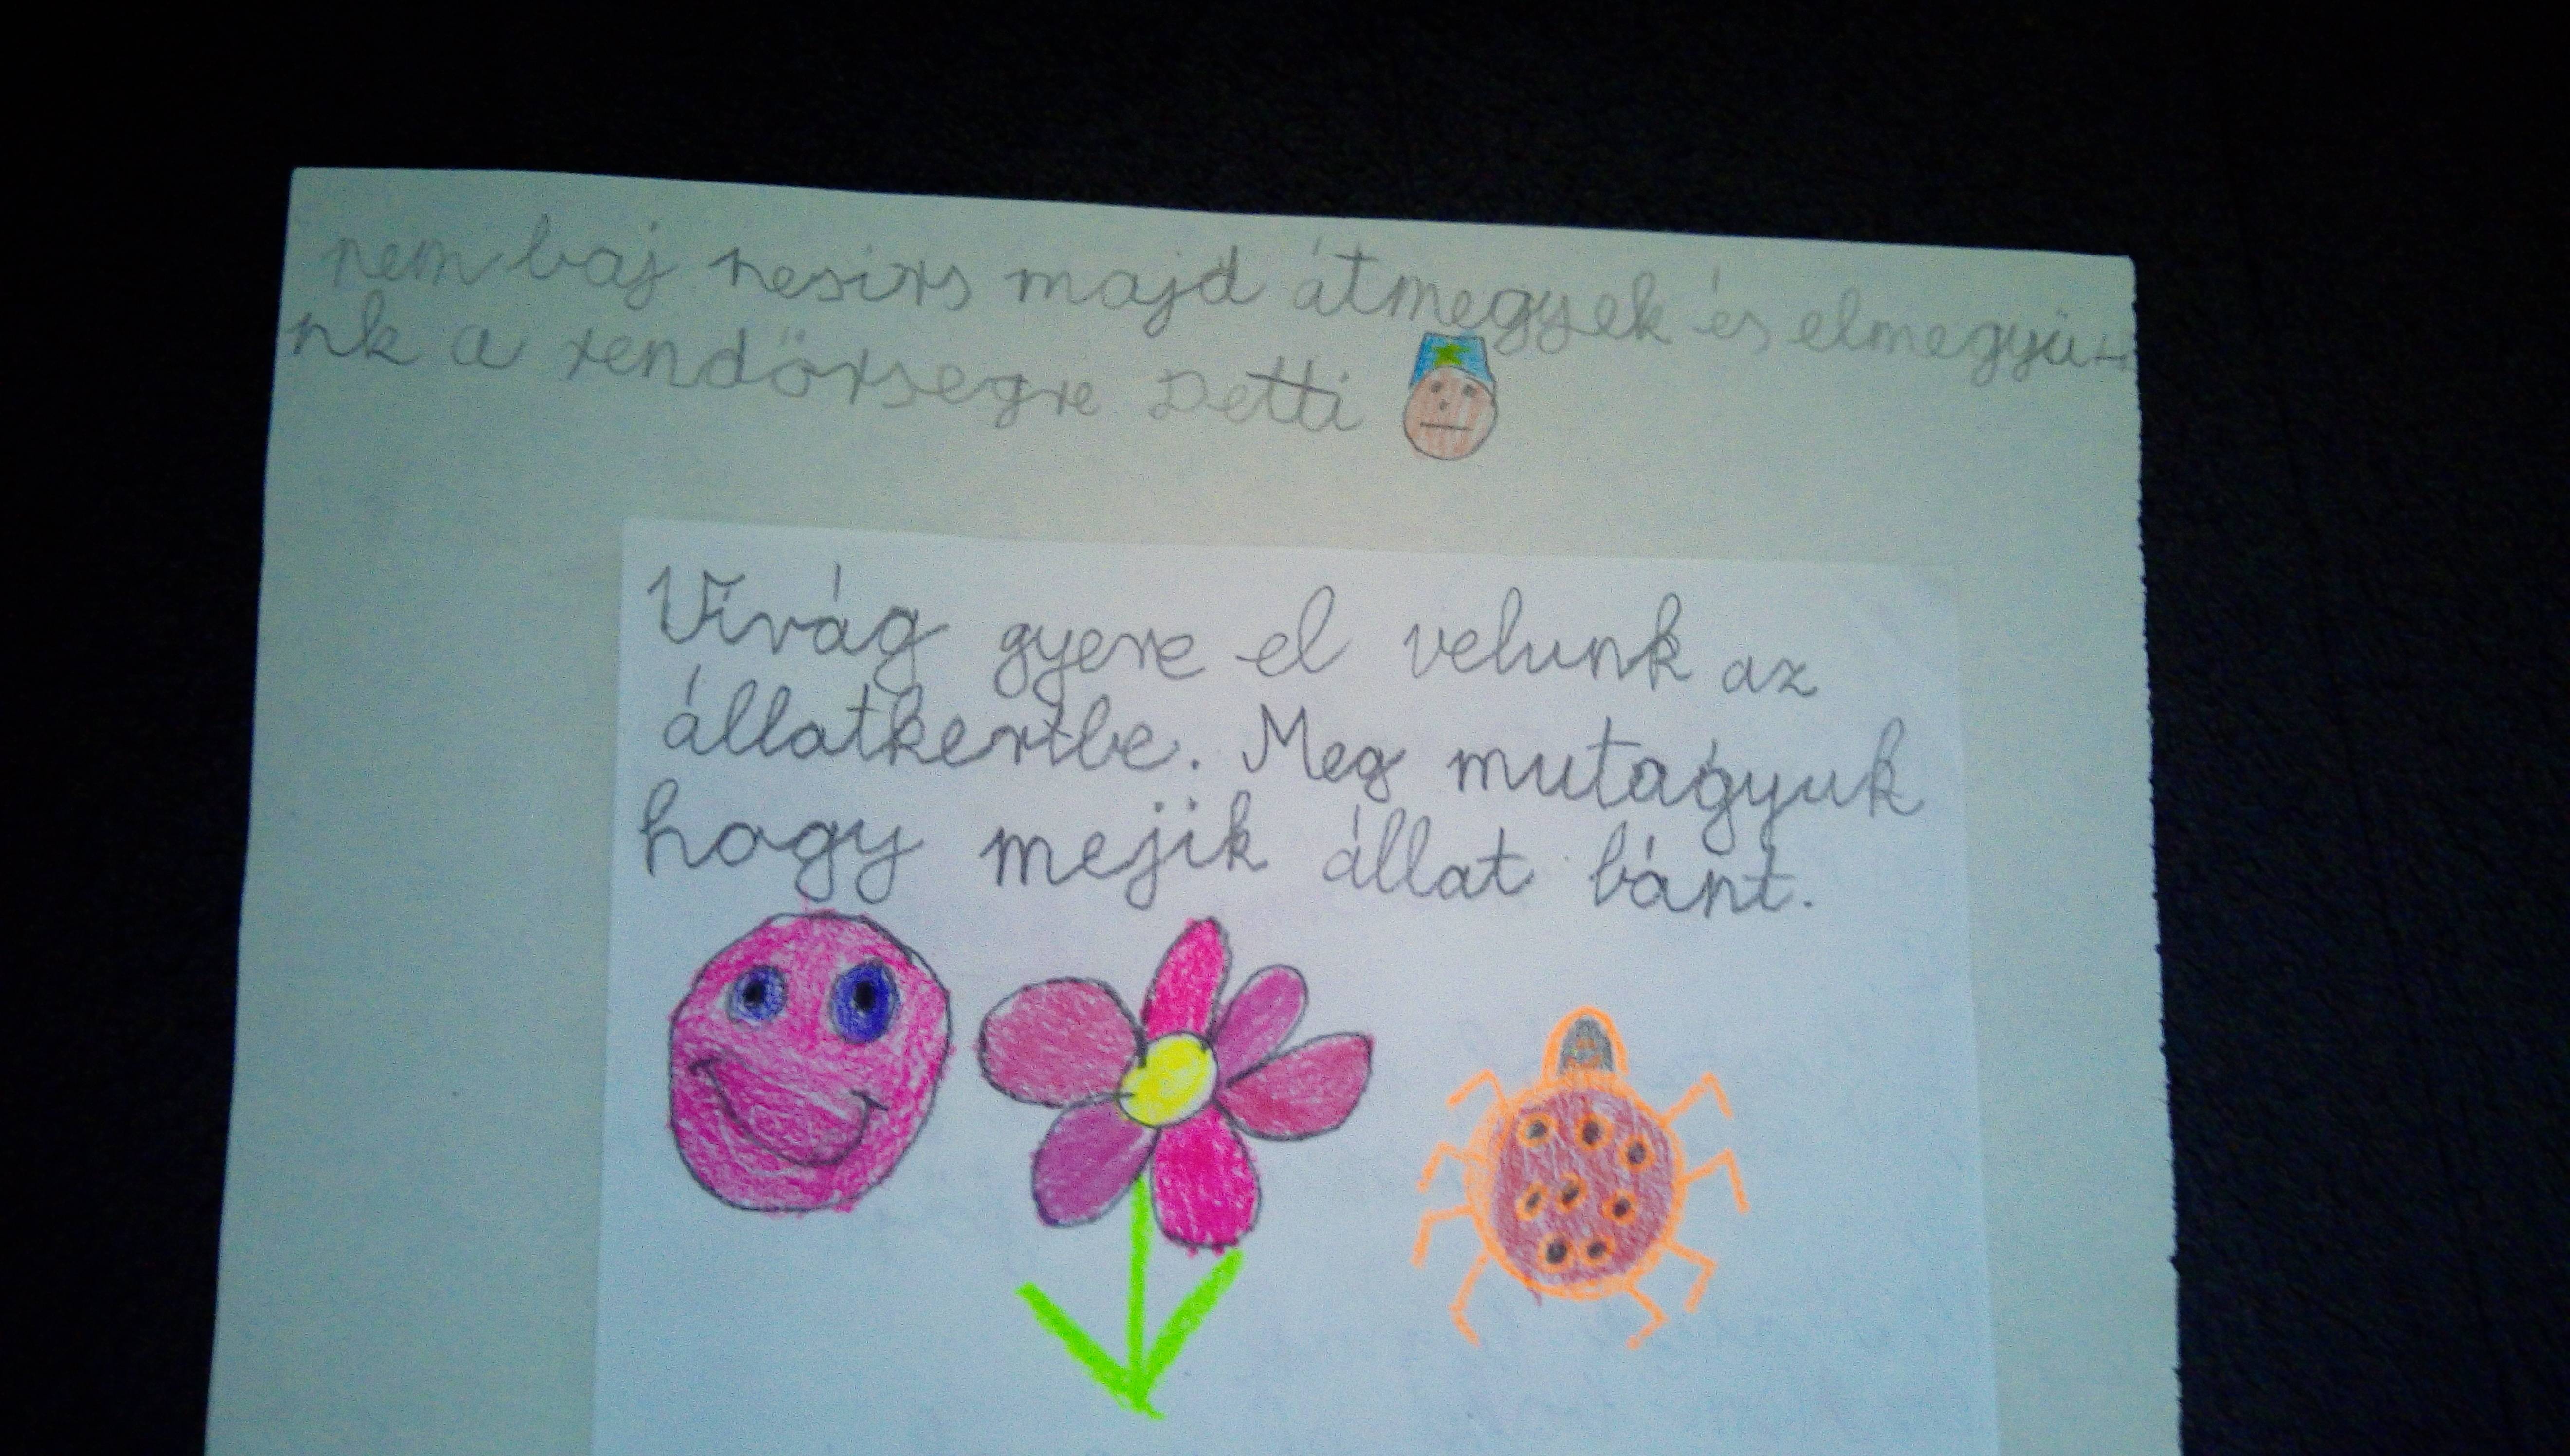 nem baj nesirs majd átmegyek és elmegyü-
nk a rendörsegre Detti
Virág gyere el velunk az
állatkertbe. Meg mutagyuk
hogy mejik állat bánt.